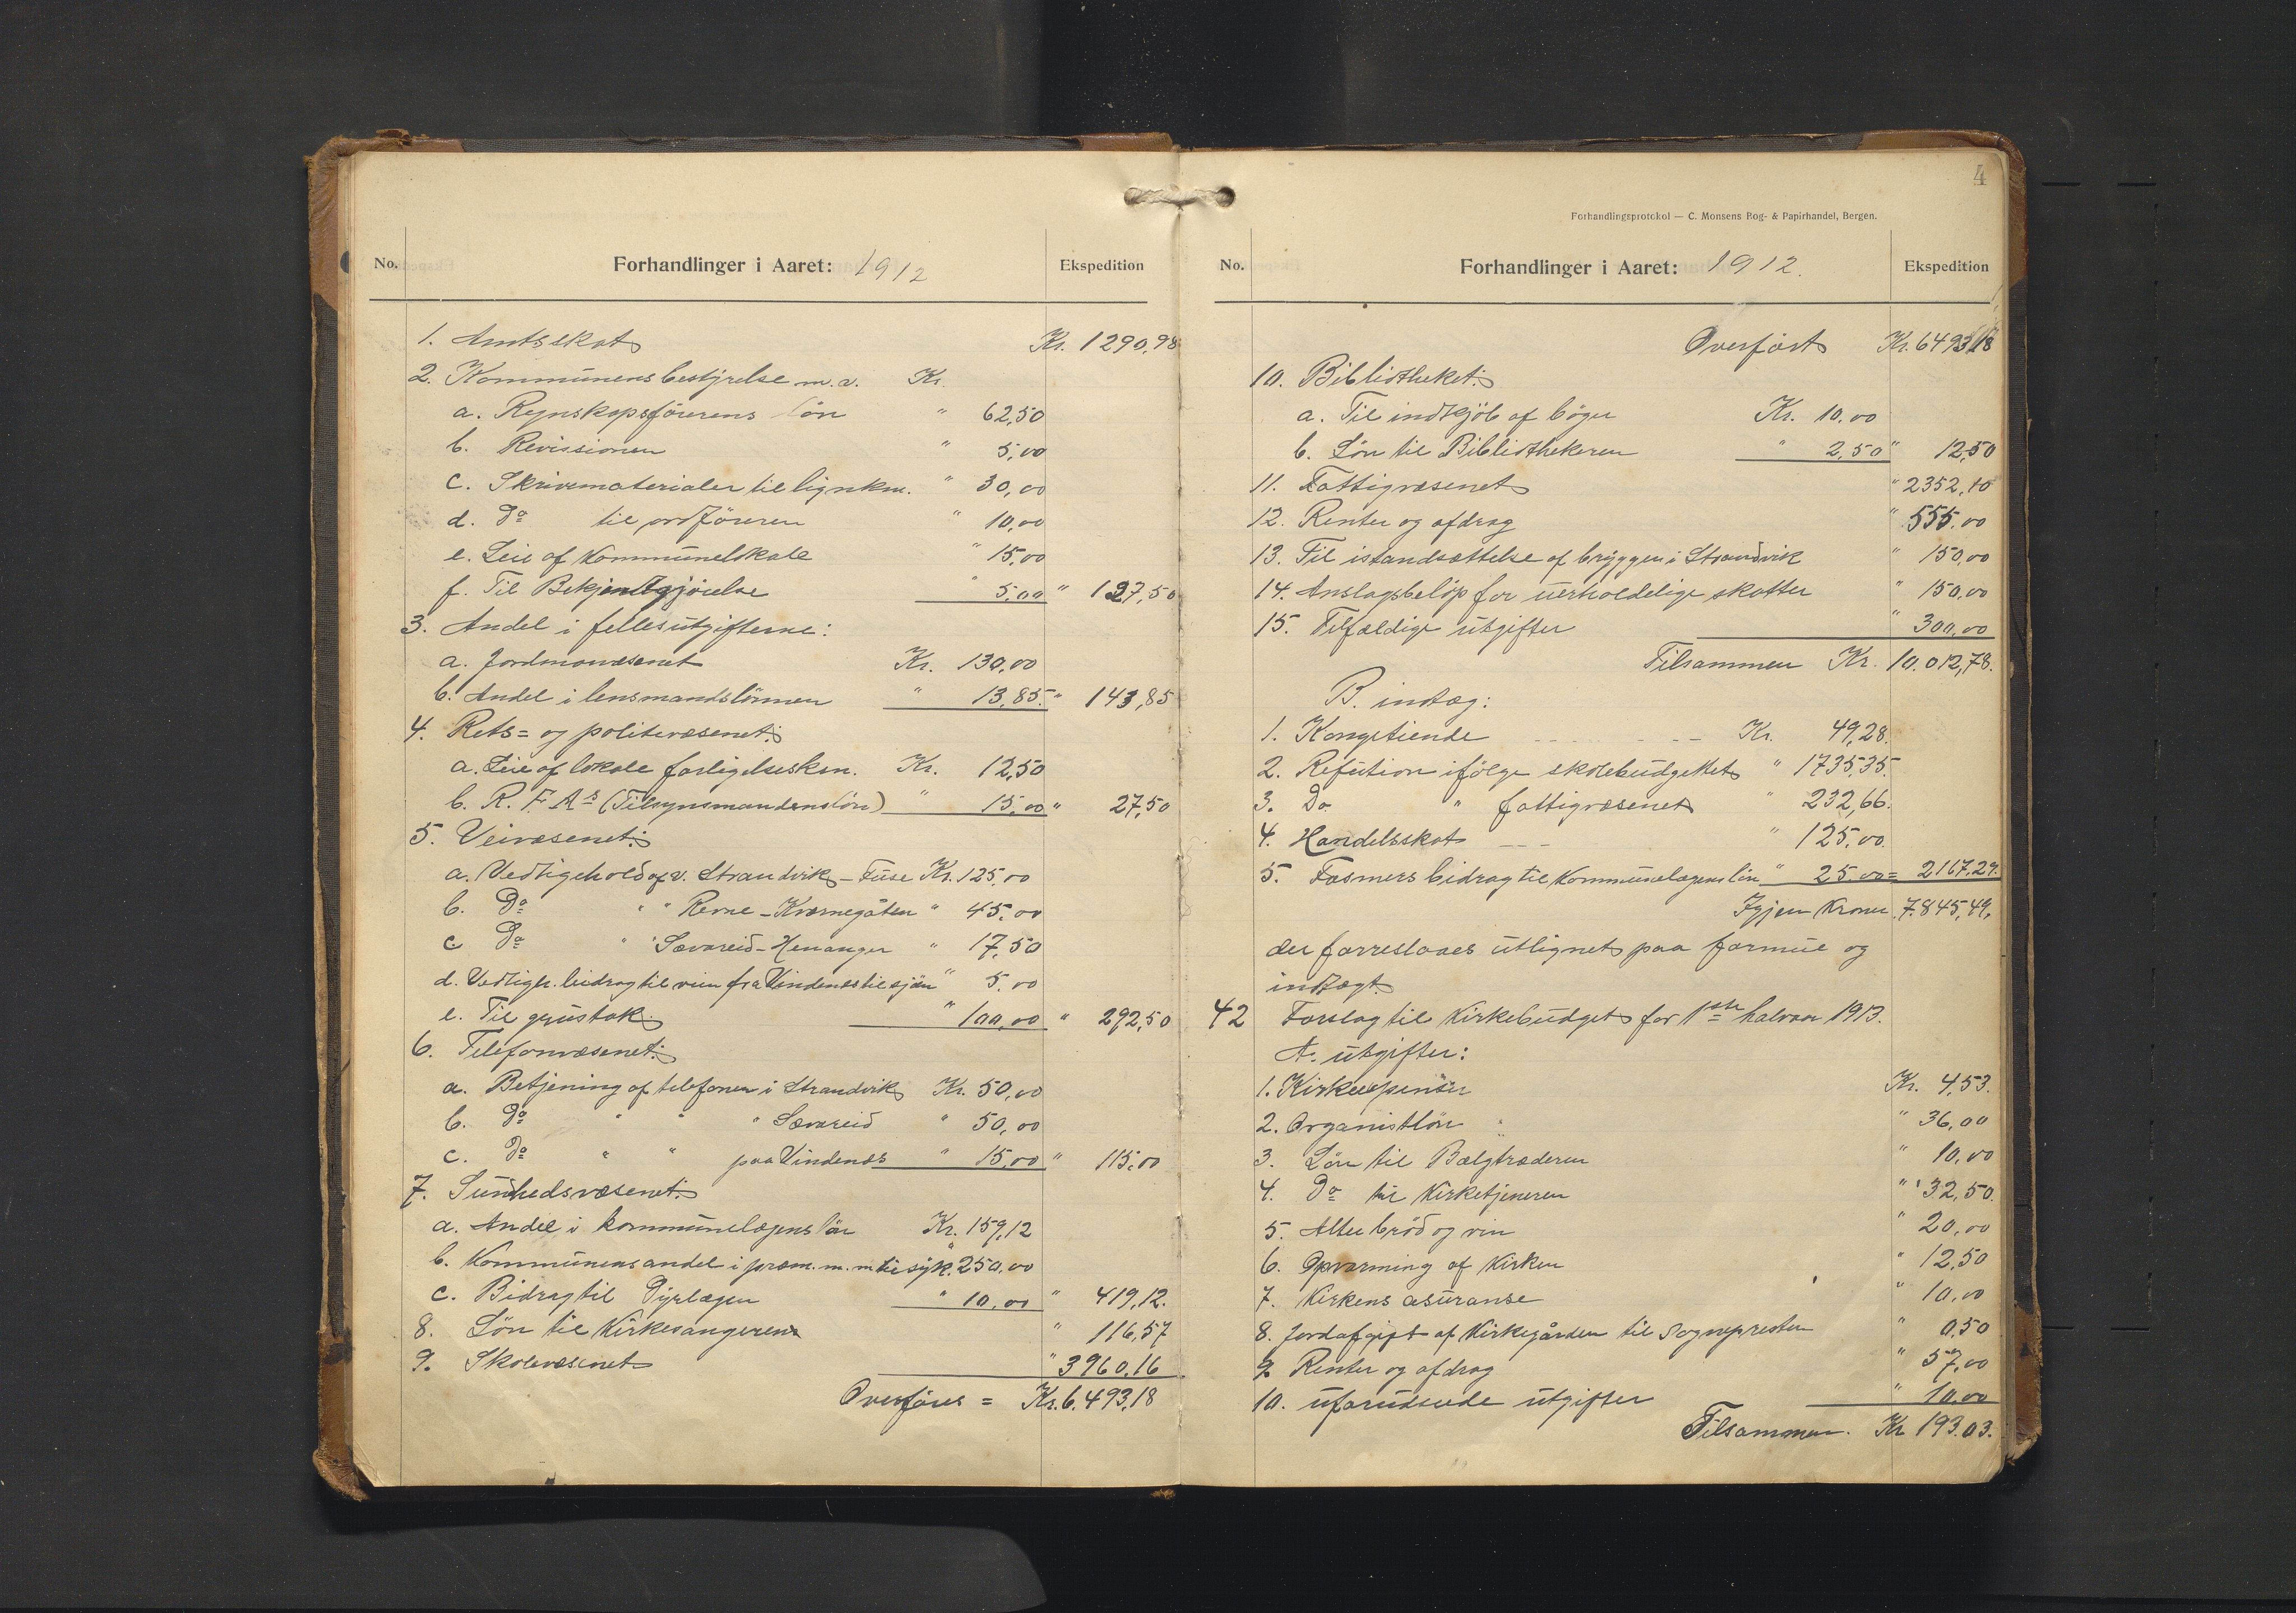 No. Forhandlinger i Aaret: 1912 Ekspedition
1. Amtsskat Kr. 1290,98
2. Kommunens bestyrelse m.v. Kr.
a. Regnskapsförerens lön " 62,50
b. Revissionen " 5,00
c. Skrivematerialer til lignkm. " 30,00
d. Do til ordföreren " 10,00
e. Leie af Kommunelokale " 15,00
f. Til Bekjendtgjörelse " 5,00 " 127,50
3. Andel i fellesutgifterne:
a. Jordmorvæsenet Kr. 130,00
b. Andel i lensmandslönnen " 13,85 " 143,85
4. Rets= og politivæsenet:
a. Leie af lokale forligelseskom. Kr. 12,50
b. R. F. As (Tilsynsmandens lön) " 15,00 " 27,50
5. Veivæsenet:
a. Vedligehold af v. Strandvik - Fuse Kr. 125,00
b. Do " " Revne - Kvernegåten " 45,00
c Do " " Sævareid - Henanger " 17,50
d. Vedligh. bidrag til veien fra Vindenes til sjön " 5,00
e. Til grustak " 100,00 " 292,50
6. Telefonvæsenet:
a. Betjening af telefonen i Strandvik Kr. 50,00
b. Do " " " Sævareid " 50,00
c. Do " " paa Vindenes " 15,00 " 115,00
7. Sundhedsvæsenet:
a. Andel i kommunelægens lön Kr. 159,12
b. Kommunens andel i præm. m. m. til syk. " 250,00
c. Bidrag til Dyrlægen " 10,00 " 419,12.
8. Lön til Kirkesangeren " 116,57
9. Skolevæsenet " 3960,16
Overföres = Kr. 6.493,18
4
Forhandlingsprotokol — C. Monsens Bog- & Papirhandel, Bergen.
No. Forhandlinger i Aaret: 1912. Ekspedition
Overfört Kr. 6493,18
10. Bibliotheket:
a. Til indkjöb af böger Kr. 10,00
b. Lön til Bibliothekeren " 2,50 " 12,50
11. Fattigvæsenet " 2352,10
12. Renter og afdrag " 555,00
13. Til istandsættelse af bryggen i Strandvik " 150,00
14. Anslagsbelöp for uerholdelige skatter " 150,00
15. Tilfældige utgifter " 300,00
Tilsammen Kr. 10.012,78.
B. indtæg:
1. Kongetiende Kr. 49,28.
2. Refution ifölge skolebudgettet " 1735,35.
3. Do " fattigvæsenet " 232,66.
4. Handelsskat " 125,00.
5. Fosmers bidrag til Kommunelægens lön " 25,00 = 2167,29.
Igjen Kroner 7.845,49,
der forreslaaes utlignet paa formue og
indtægt.
42 Forslag til Kirkebudget for 1ste halvaar 1913.
A. utgifter:
1. Kirkeexpenser Kr. 4,53.
2. Organistlön " 36,00
3. Lön til Bælgtræderen " 10,00
4. Do til Kirketjeneren " 32,50.
5. Alterbröd og vin " 20,00
6. Opvarming af Kirken " 12,50
7. Kirkens asuranse " 10,00
8. Jordafgift af Kirkegården til Sognepresten " 0,50
9. Renter og afdrag " 57,00
10. uforudseede utgifter " 10,00
Tilsammen. Kr 193.03.